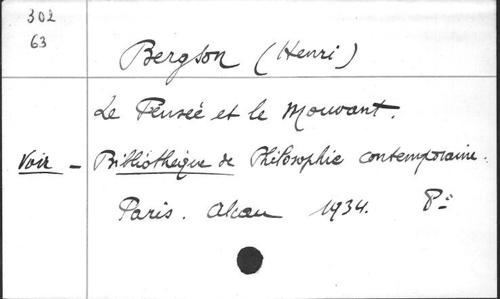 302
63
Bergson (Henri)
Le Pensée et le Mouvant.
Voir - Bibliothèque de Philosophie contemporaine.
Paris. Alcan 1934. 8º